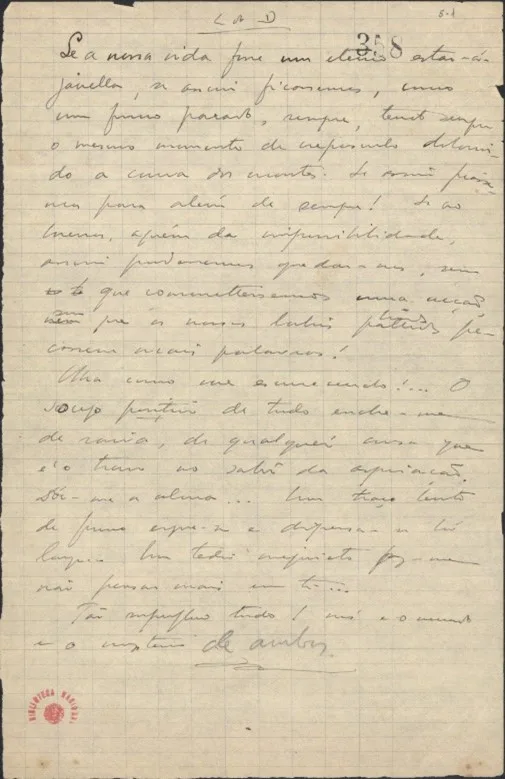 L. do D.
5-1
358
Se a nossa vida fosse um eterno estar-á-
janella, se assim ficassemos, como
um fumo parado, sempre, tendo sempre
o mesmo momento de crepusculo dolorin-
do a curva dos montes. Se assim ficasse-
mos para além de sempre! Se ao
menos, aquém da impossibilidade,
assim pudessemos quedar-nos, sem
que commettessemos uma acção
sem que os nossos labios pallidos pe-
cassem mais palavras!
Olha como vae escurecendo!... O
socego positivo de tudo enche-me
de raiva, de qualquer cousa que
é o travo no sabôr da aspiração.
Dóe-me a alma... Um traço lento
de fumo ergue-se e dispersa-se lá
longe... Um tedio inquieto faz-me
não pensar mais em ti...
Tão superfluo tudo! nós e o mundo
e o mysterio de ambos.
BIBLIOTECA NACIONAL